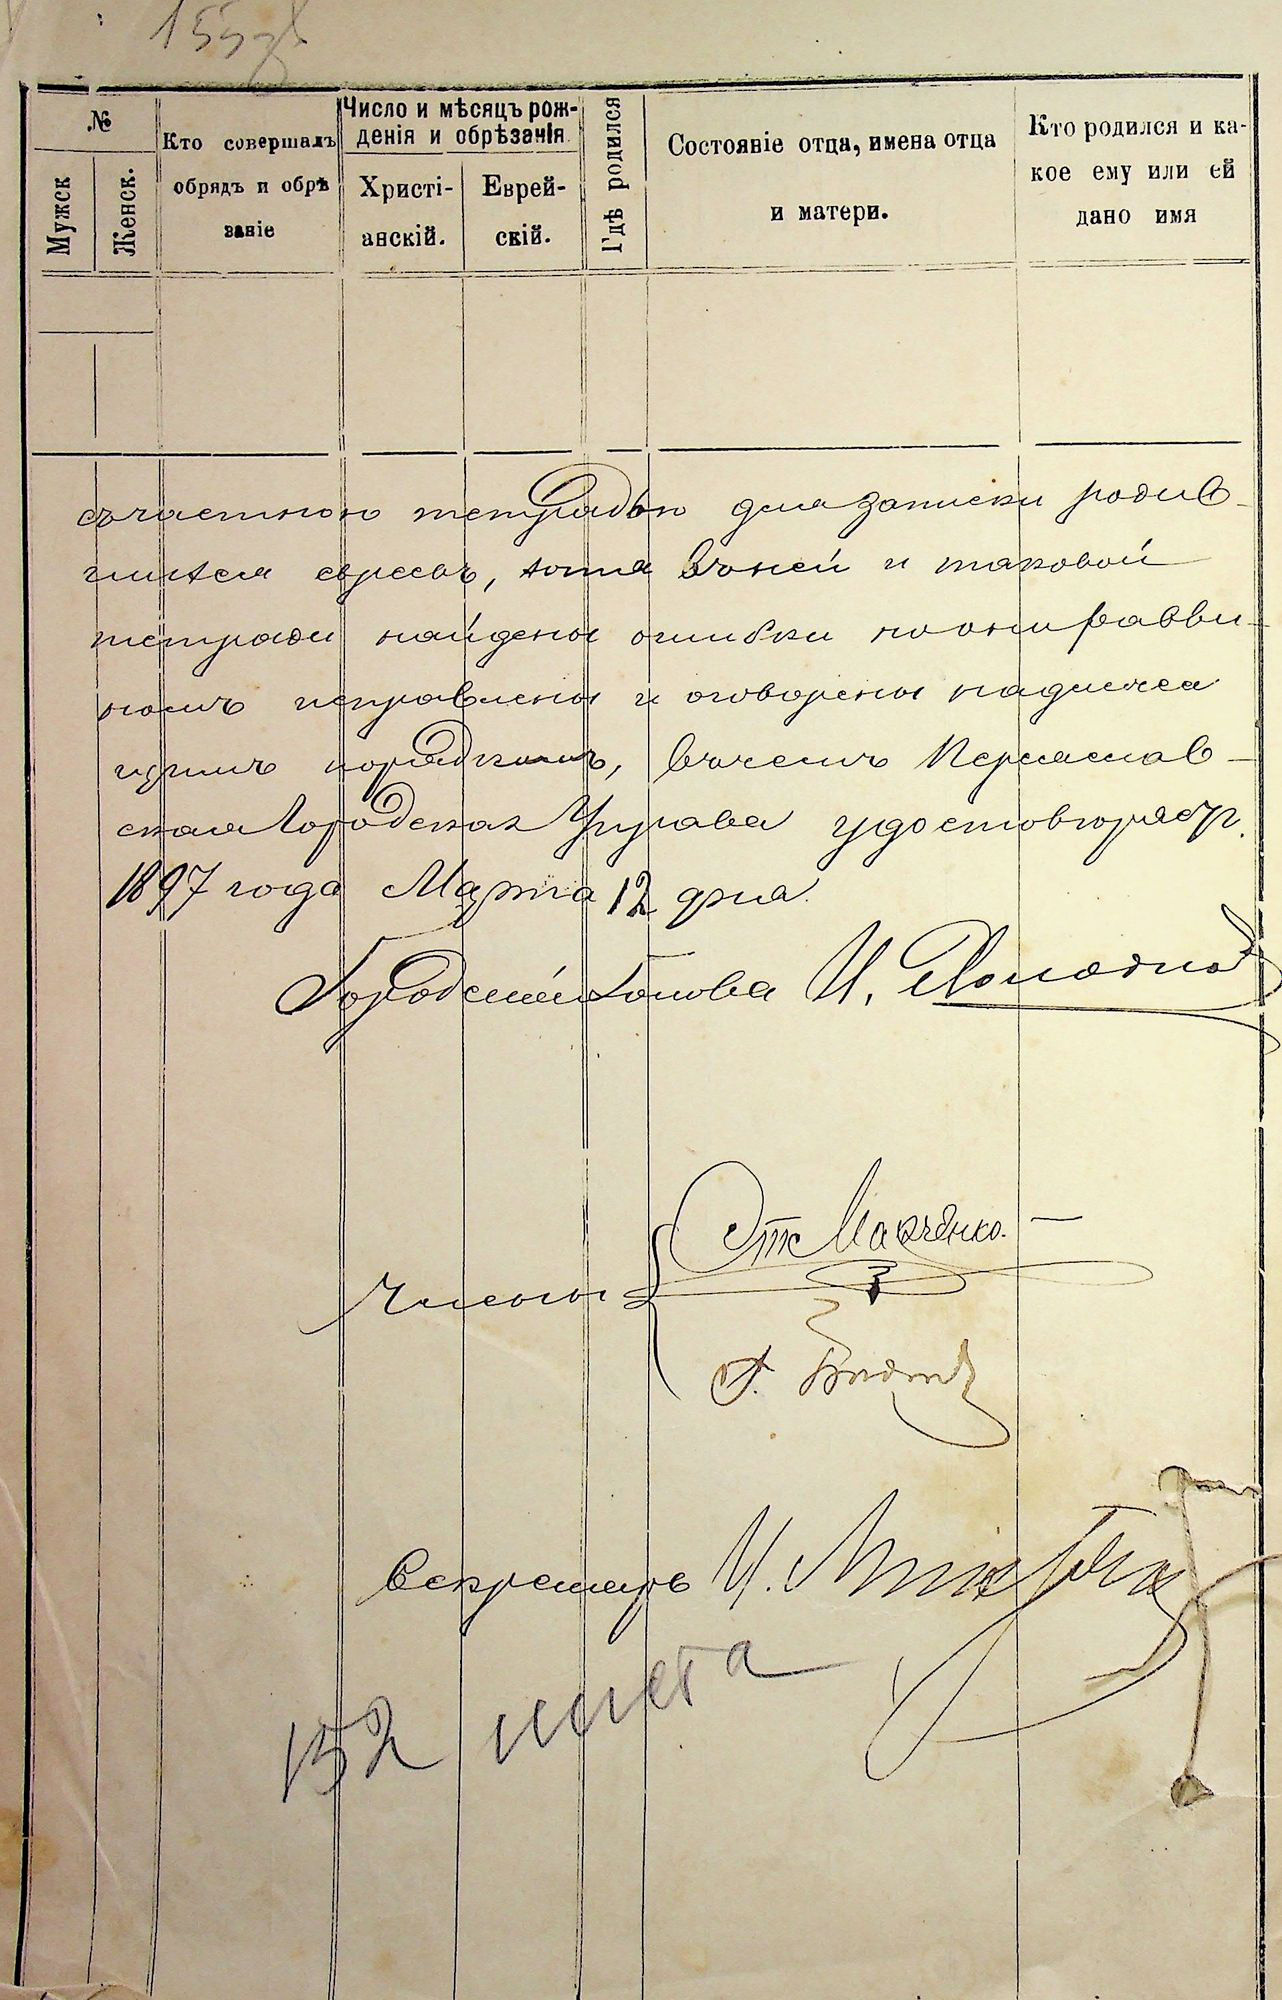 №
Мужск
Женск.
Кто совершалъ
обрядъ и обрѣ
заніе
Число и мѣсяцъ рож-
денія и обрѣзанія
Христі-
анскій.
Еврей-
скій.
Гдѣ родился
Состояніе отца, имена отца
и матери.
Кто родился и ка-
кое ему или ей
дано имя
съ частною тетрадью для записки родив-
шихся евреевъ, хотя въ ней и таковой
тетради найдены ошибки но они равви-
номъ исправлены и оговорены надлежа
щимъ порядкомъ, въ чемъ Переяслав-
ская Городская Управа удостовѣряетъ.
1897 года Марта 12 дня.
Городской Голова И.
Члены
Марченко.
Г.
Секретарь И.
152 листа